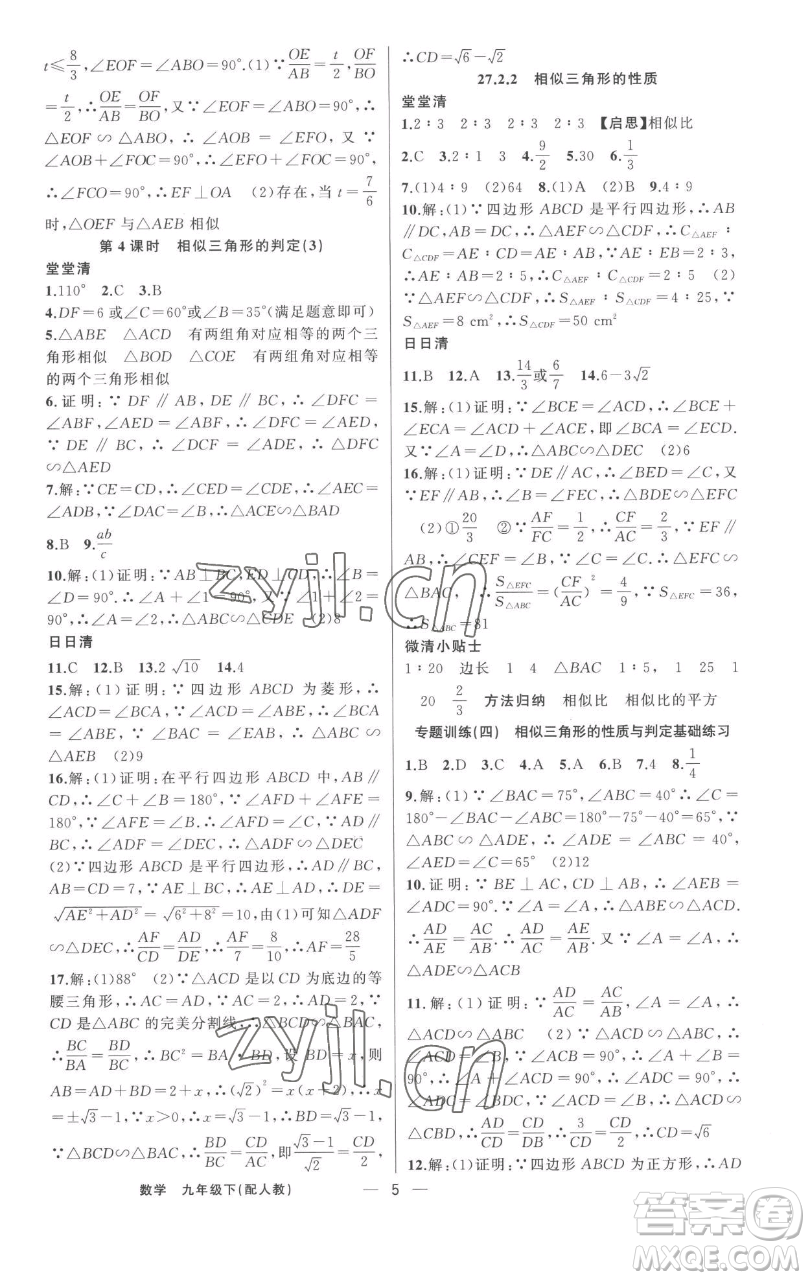 t≤8/3,∠EOF=∠ABO=90°.(1)∵OE/AB=t/2,OF/BO
=t/2,∴OE/AB=OF/BO,又∵∠EOF=∠ABO=90°,∴
△EOF∽△ABO.∴∠AOB=∠EFO.又∵
∠AOB+∠FOC=90°,∴∠EFO+∠FOC=90°,
∴∠FCO=90°,∴EF⊥OA (2)存在,当t=7/6
时,△OEF与△AEB相似
第4课时 相似三角形的判定(3)
堂堂清
1.110° 2.C 3.B
4.DF=6或∠C=60°或∠B=35°(满足题意即可)
5.△ABE △ACD 有两组角对应相等的两个三
角形相似 △BOD △COE 有两组角对应相等
的两个三角形相似
6.证明:∵DF∥AB,DE∥BC,∴∠DFC=
∠ABF,∠AED=∠ABF,∴∠DFC=∠AED,
∵DE∥BC,∴∠DCF=∠ADE,∴△DFC
∽△AED
7.解:∵CE=CD,∴∠CED=∠CDE,∴∠AEC=
∠ADB,∵∠DAC=∠B,∴△ACE∽△BAD
8.B 9.ab/c
10.解:(1)证明:∵AB⊥BC,ED⊥CD,∴∠B=
∠D=90°,∴∠A+∠1=90°,又∵∠1+∠2=
90°,∴∠A=∠2,∴△ABC∽△CDE (2)8
日日清
11.C 12.B 13.2√10 14.4
15.解:(1)证明:∵四边形ABCD为菱形,∴
∠ACD=∠BCA,∵∠ACD=∠ABE,∴∠BCA
=∠ABE,∵∠BAC=∠EAB,∴△ABC∽
△AEB (2)9
16.解:(1)证明:在平行四边形ABCD中,AB∥
CD,∴∠C+∠B=180°,∵∠AFD+∠AFE=
180°,∵∠AFE=∠B,∴∠AFD=∠C,∵AD∥
BC,∴∠ADF=∠DEC,∴△ADF∽△DEC
(2)∵四边形ABCD是平行四边形,∴AD∥BC,
AB=CD=7,∵AE⊥BC,∴AE⊥AD,∴DE=
√(AE²+AD²)=√(6²+8²)=10,由(1)知△ADF
∽△DEC,∴AF/CD=AD/DE,∴AF/7=8/10,∴AF=28/5
17.解:(1)88° (2)∵△ACD是以CD为底边的等
腰三角形,∴AC=AD,∵AC=2,∴AD=2,∵
CD是△ABC的完美分割线,∴△BCD∽△BAC,
∴BC/BA=BD/BC,∴BC²=BA·BD,设BD=x,则
AB=AD+BD=2+x,∴(√2)²=x(x+2),∴x
=±√3-1,∵x>0,∴x=√3-1,∴BD=√3-1,
∵△BCD∽△BAC,∴BD/BC=CD/AC,∴(√3-1)/√2=CD/2,
∴CD=√6-√2
27.2.2 相似三角形的性质
堂堂清
1.2∶3 2∶3 2∶3 2∶3 【启思】相似比
2.C 3.2∶1 3 4.9/2 5.30 6.1/3
7.(1)4∶9 (2)64 8.(1)A (2)B 9.4∶9
10.解:(1)∵四边形ABCD是平行四边形,∴AB
∥DC,AB=DC,∴△AEF∽△CDF,∴C△AEF∶
C△CDF=AE∶CD=AE∶AB,∵AE∶EB=2∶
3,∴AE∶AB=2∶5,∴C△AEF∶C△CDF=2∶5 (2)
∵△AEF∽△CDF,∴S△AEF∶S△CDF=4∶25,∵
S△AEF=8 cm²,∴S△CDF=50 cm²
日日清
11.B 12.A 13.14/3或6/7 14.6-3√2
15.解:(1)证明:∵∠BCE=∠ACD,∴∠BCE+
∠ECA=∠ACD+∠ACE,即∠BCA=∠ECD.
又∵∠A=∠D,∴△ABC∽△DEC (2)6
16.解:(1)证明:∵DE∥AC,∴∠BED=∠C,又
∵EF∥AB,∴∠B=∠FEC,∴△BDE∽△EFC
(2)①20/3 ②∵AF/FC=1/2,∴CF/AC=2/3,∵EF∥
AB,∴∠CEF=∠B,又∵∠C=∠C,∴△EFC∽
△BAC,∴S△EFC/S△ABC=(CF/AC)²=4/9,∵S△EFC=36,
∴S△ABC=81
微清小贴士
1∶20 边长 1 4 △BAC 1 25 1
20 2/3 方法归纳 相似比 相似比的平方
专题训练(四) 相似三角形的性质与判定基础练习
1.B 2.D 3.C 4.A 5.A 6.B 7.4 8.1/4
9.解:(1)∵∠BAC=75°,∠ABC=40°∴∠C=
180°-∠BAC-∠ABC=180°-75°-40°=65°,∵
△ABC∽△ADE,∴∠ADE=∠ABC=40°,
∠AED=∠C=65° (2)12
10.证明:∵BE⊥AC,CD⊥AB,∴∠AEB=
∠ADC=90°.∵∠A=∠A,∴△ADC∽△AEB.
∴AD/AE=AC/AB,∴AD/AC=AE/AB.∵∠A=∠A,∴
△ADE∽△ACB
11.解:(1)证明:∵AD/AC=AC/AB,∠A=∠A,∴
△ACD∽△ABC (2)∵△ACD∽△ABC,∴
∠ACD=∠B,∵∠ADC=90°,∴∠BDC=90°,
∠A+∠ACD=90°,∴∠A+∠B=90°,∴∠ACB=
90°,∴∠ADC=∠BDC=90°,∴△ACD∽
△CBD,∴AD/CD=CD/DB,∴3/CD=CD/2,∴CD=√6
12.解:(1)证明:∵四边形ABCD为正方形,∴
数学 九年级下(配人教) — 5 —
zyjl.cn
zyjl.cn
答案圈
MXQE.COM